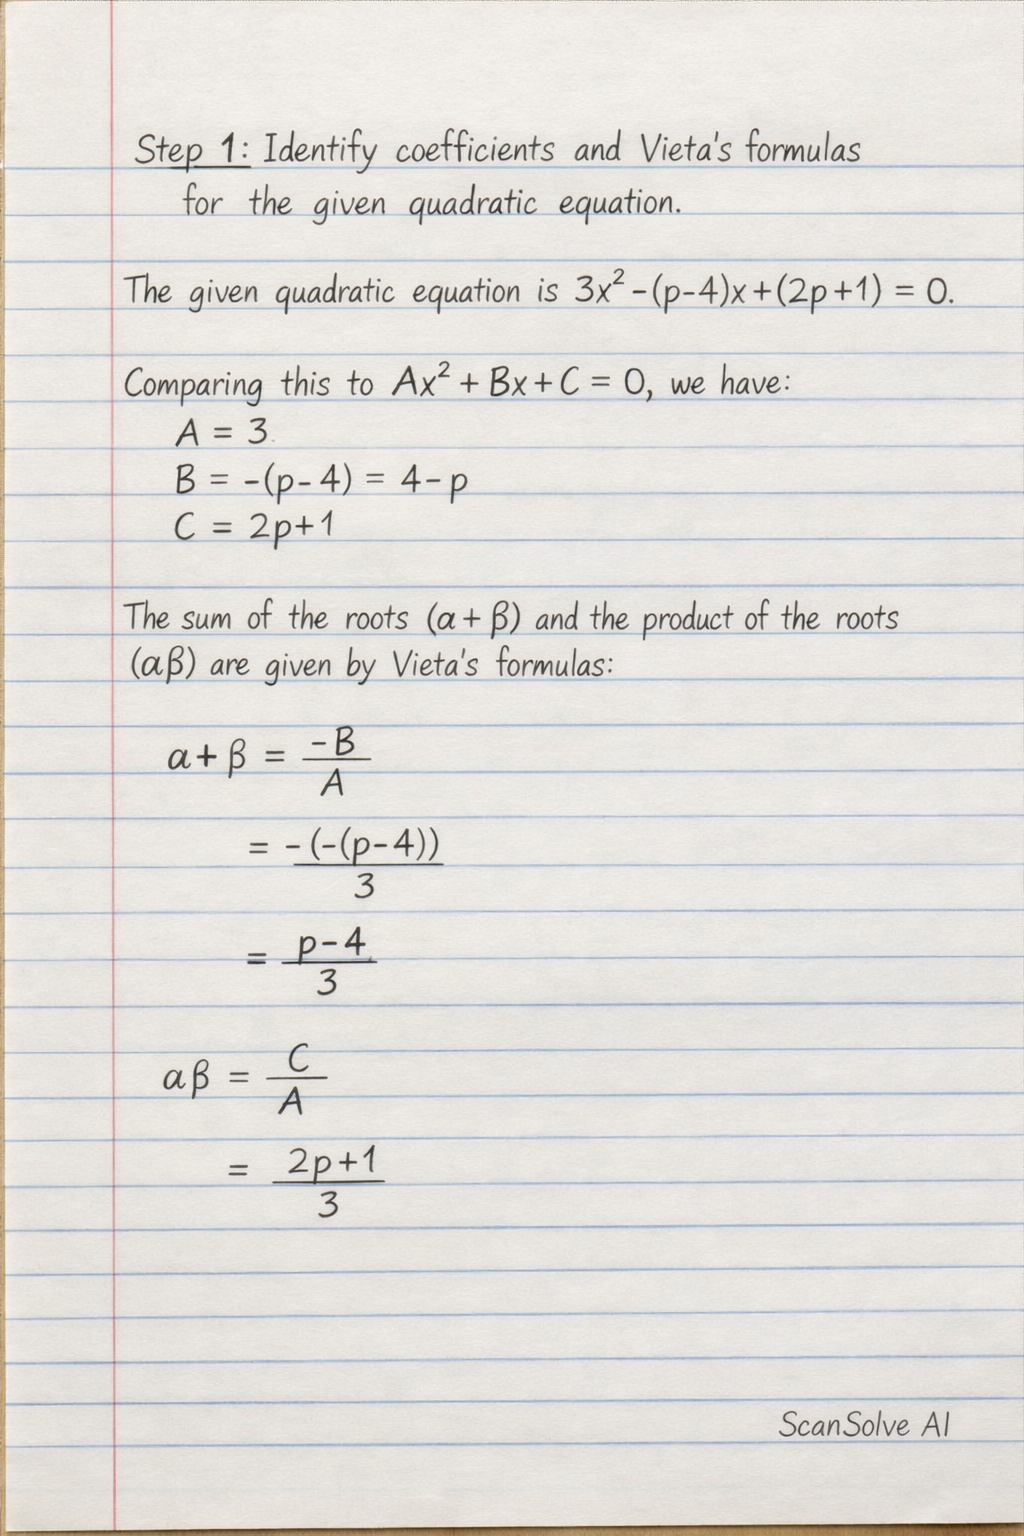 Step 1: Identify coefficients and Vieta's formulas
for the given quadratic equation.
The given quadratic equation is 3x² - (p-4)x + (2p+1) = 0.
Comparing this to Ax² + Bx + C = 0, we have:
A = 3
B = -(p-4) = 4-p
C = 2p+1
The sum of the roots (α + β) and the product of the roots
(αβ) are given by Vieta's formulas:
α + β = -B
A
= -(-(p-4))
3
= p-4
3
αβ = C
A
= 2p+1
3
ScanSolve AI